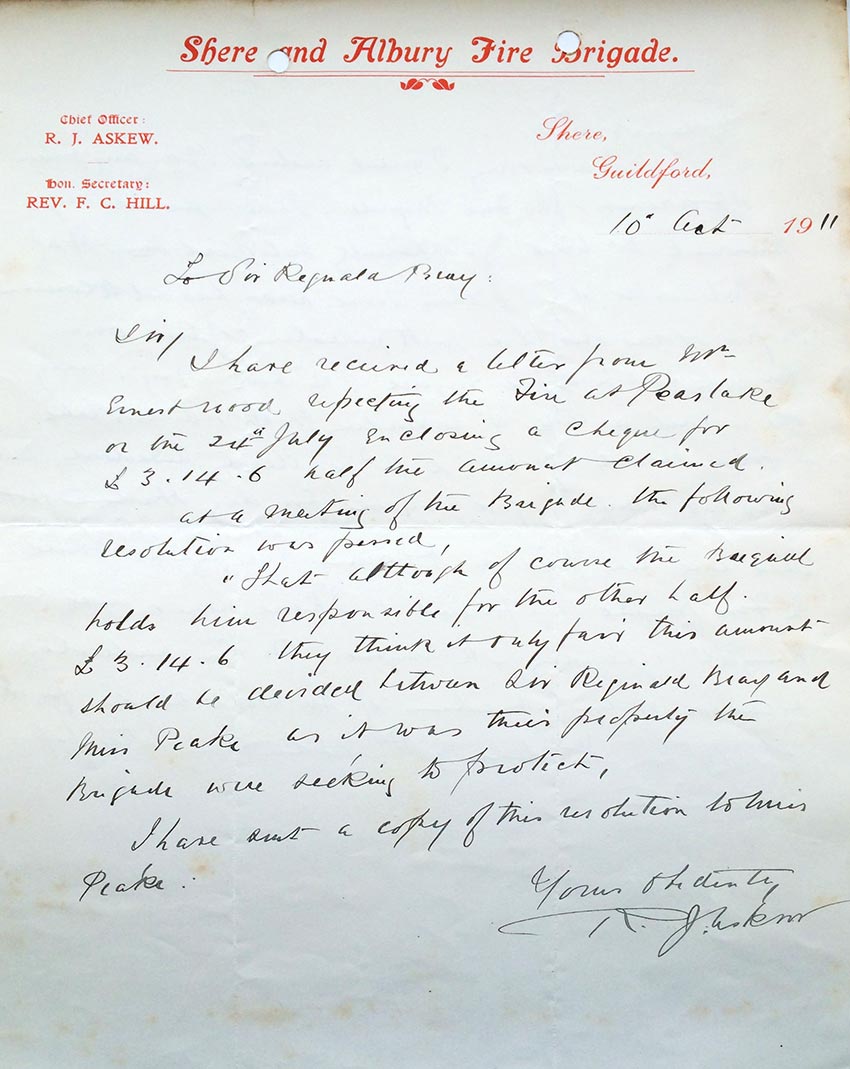 Shere and Albury Fire Brigade.
Chief Officer:
R. J. ASKEW.
Hon. Secretary:
REV. F. C. HILL.
Shere,
Guildford,
10th Oct 1911
To Sir Reginald Bray:
Sir/
I have received a letter from Mr
Ernest Wood respecting the Fire at Peaslake
on the 24th July Enclosing a Cheque for
£3.14.6 half the amount claimed.
at a meeting of the Brigade. the following
resolution was passed,
"That although of course the Brigade
holds him responsible for the other half.
£3.14.6 they think it only fair this amount
should be decided between Sir Reginald Bray and
Miss Peake as it was their property the
Brigade were seeking to protect,
I have sent a copy of this resolution to Miss
Peake:
Yours obediently
R. J. Askew